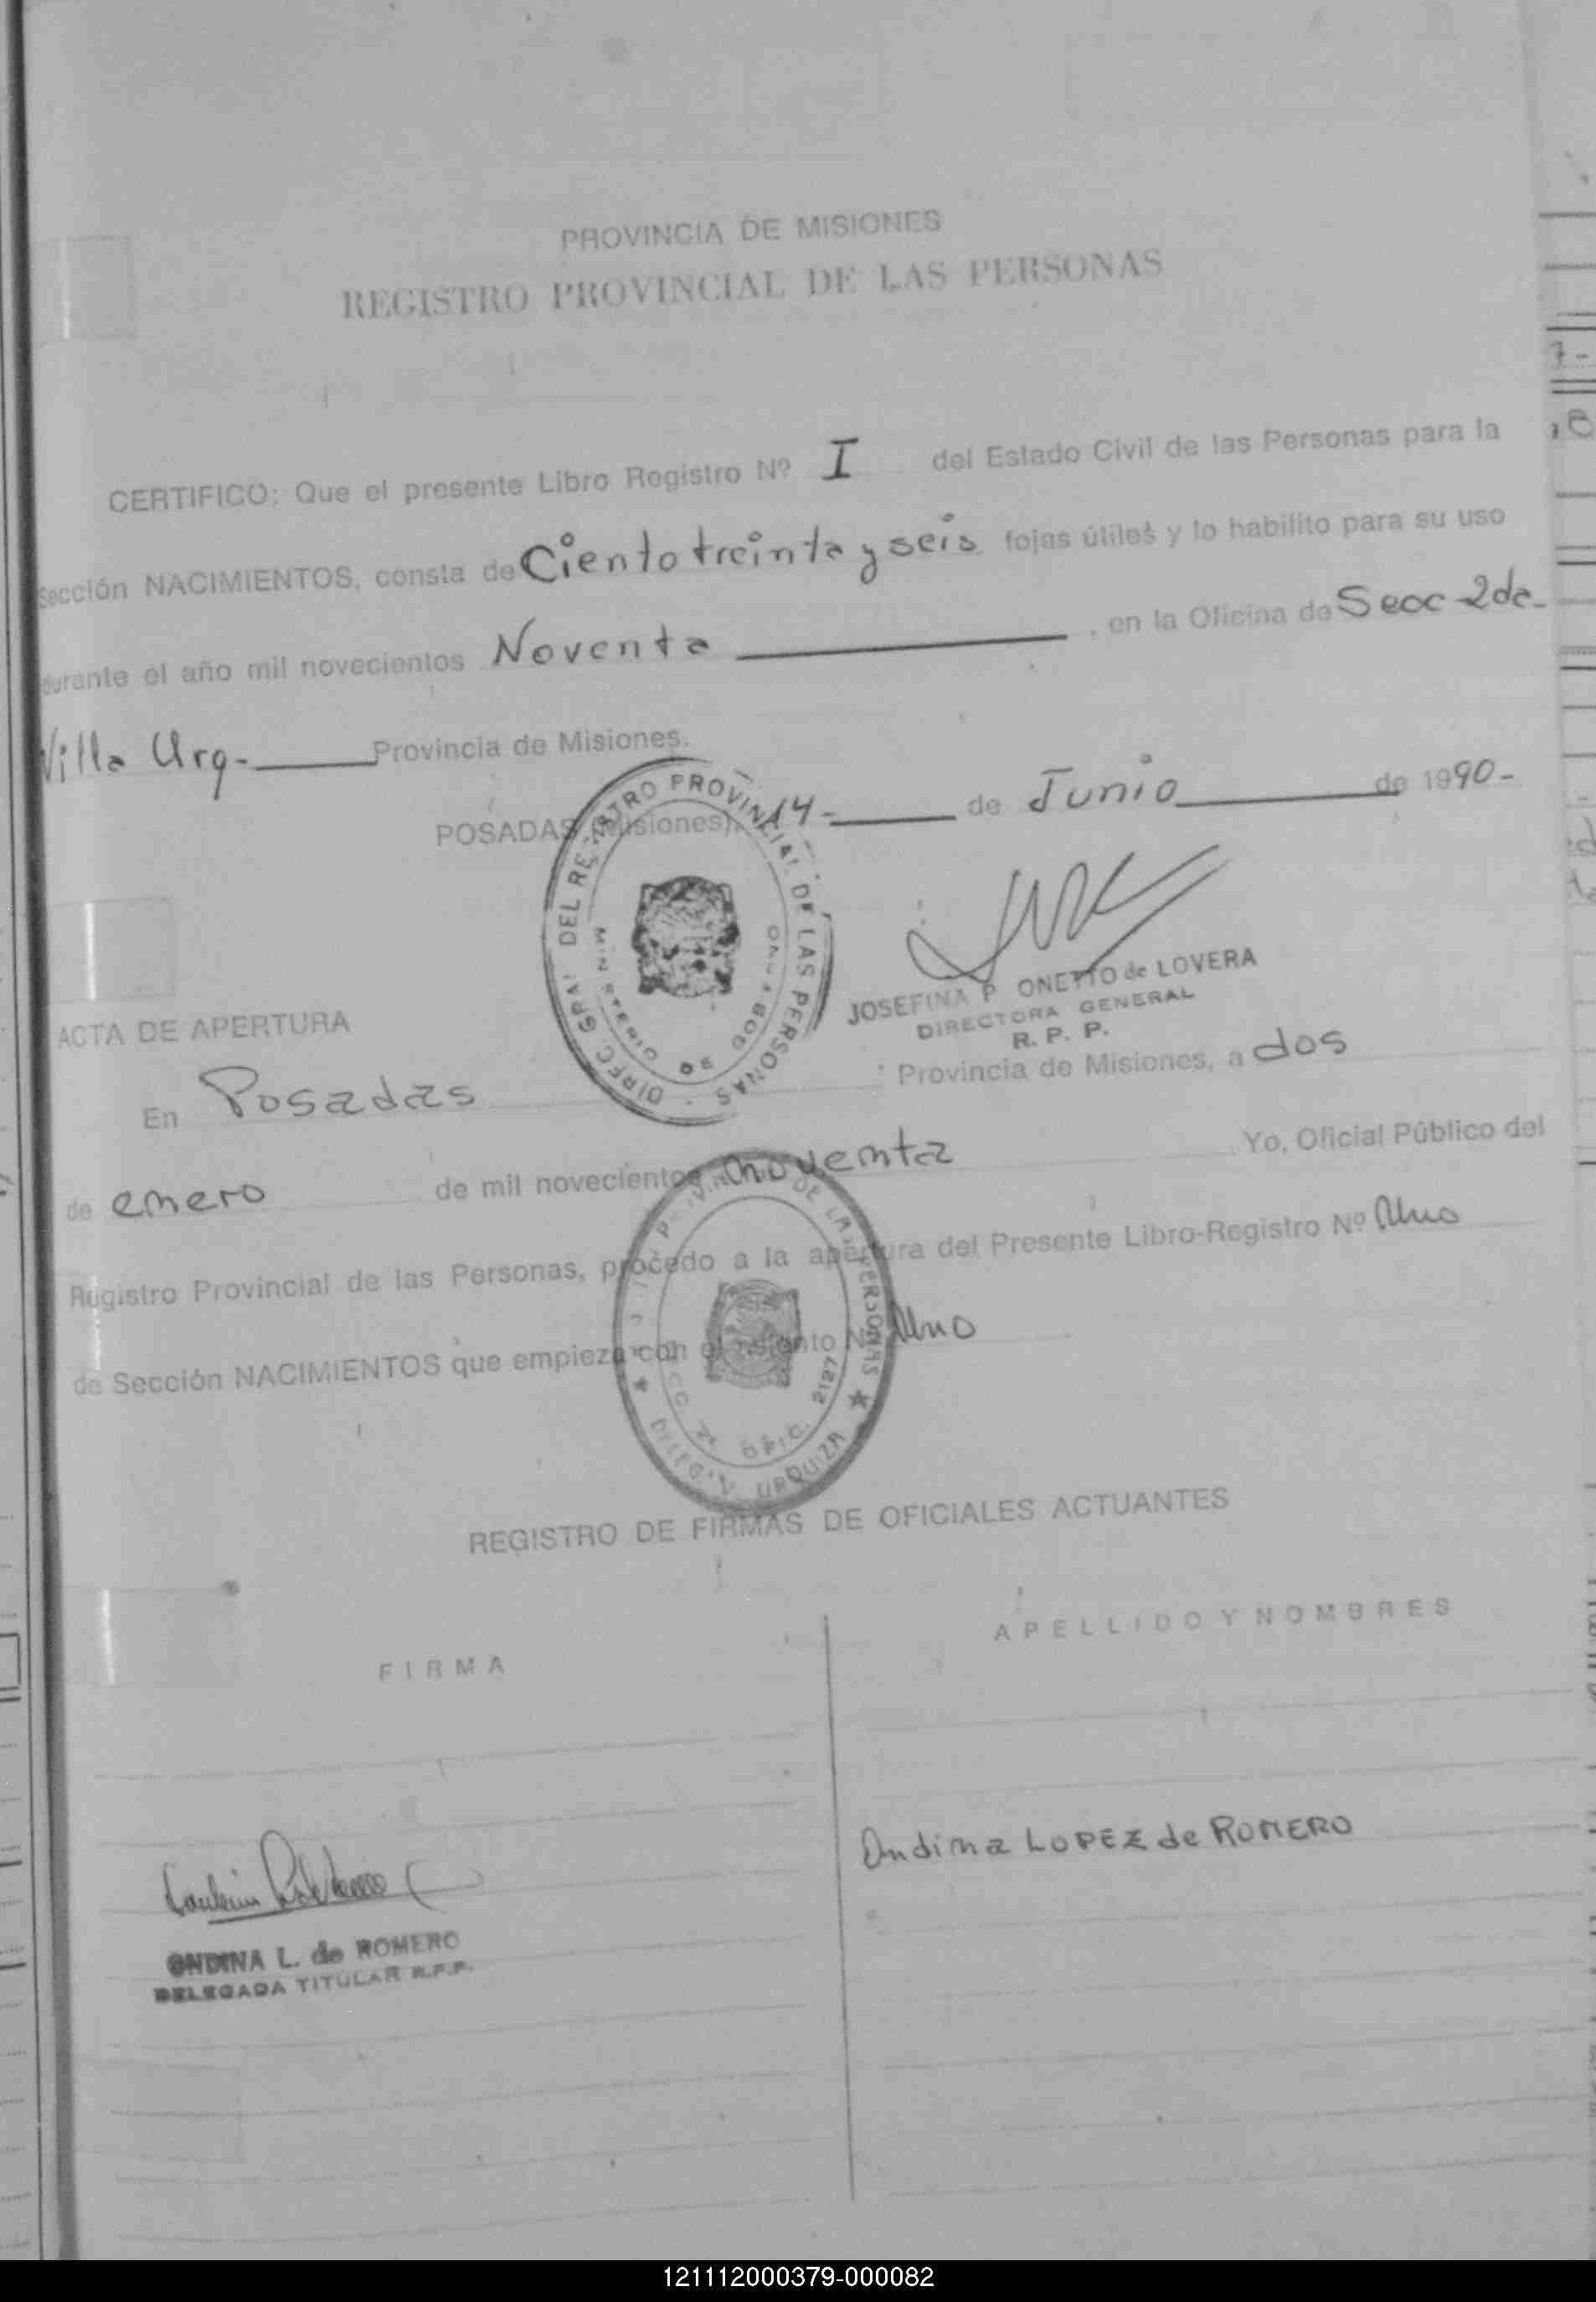 PROVINCIA DE MISIONES
REGISTRO PROVINCIAL DE LAS PERSONAS
CERTIFICO: Que el presente Libro Registro Nº I del Estado Civil de las Personas para la
Sección NACIMIENTOS, consta de Ciento treinta y seis fojas útiles y lo habilito para su uso
durante el año mil novecientos Noventa , en la Oficina de Secc 2da-
Villa Urq- Provincia de Misiones.
POSADAS (Misiones), 14- de Junio de 1990-
DIREC. GRAL DEL REGISTRO PROVINCIAL DE LAS PERSONAS -
MINISTERIO DE GOB.
JOSEFINA P ONETTO de LOVERA
DIRECTORA GENERAL
R. P. P.
ACTA DE APERTURA
En Posadas Provincia de Misiones, a dos
de enero de mil novecientos noventa Yo, Oficial Público del
Registro Provincial de las Personas, procedo a la apertura del Presente Libro-Registro Nº Uno
de Sección NACIMIENTOS que empieza con el asiento Nº Uno
DE LAS PERSONAS ★ URQUIZA ★
OFIC. 2127
REGISTRO DE FIRMAS DE OFICIALES ACTUANTES
FIRMA
APELLIDO Y NOMBRES
Ondina LOPEZ de ROMERO
ONDINA L. de ROMERO
DELEGADA TITULAR R.P.P.
121112000379-000082